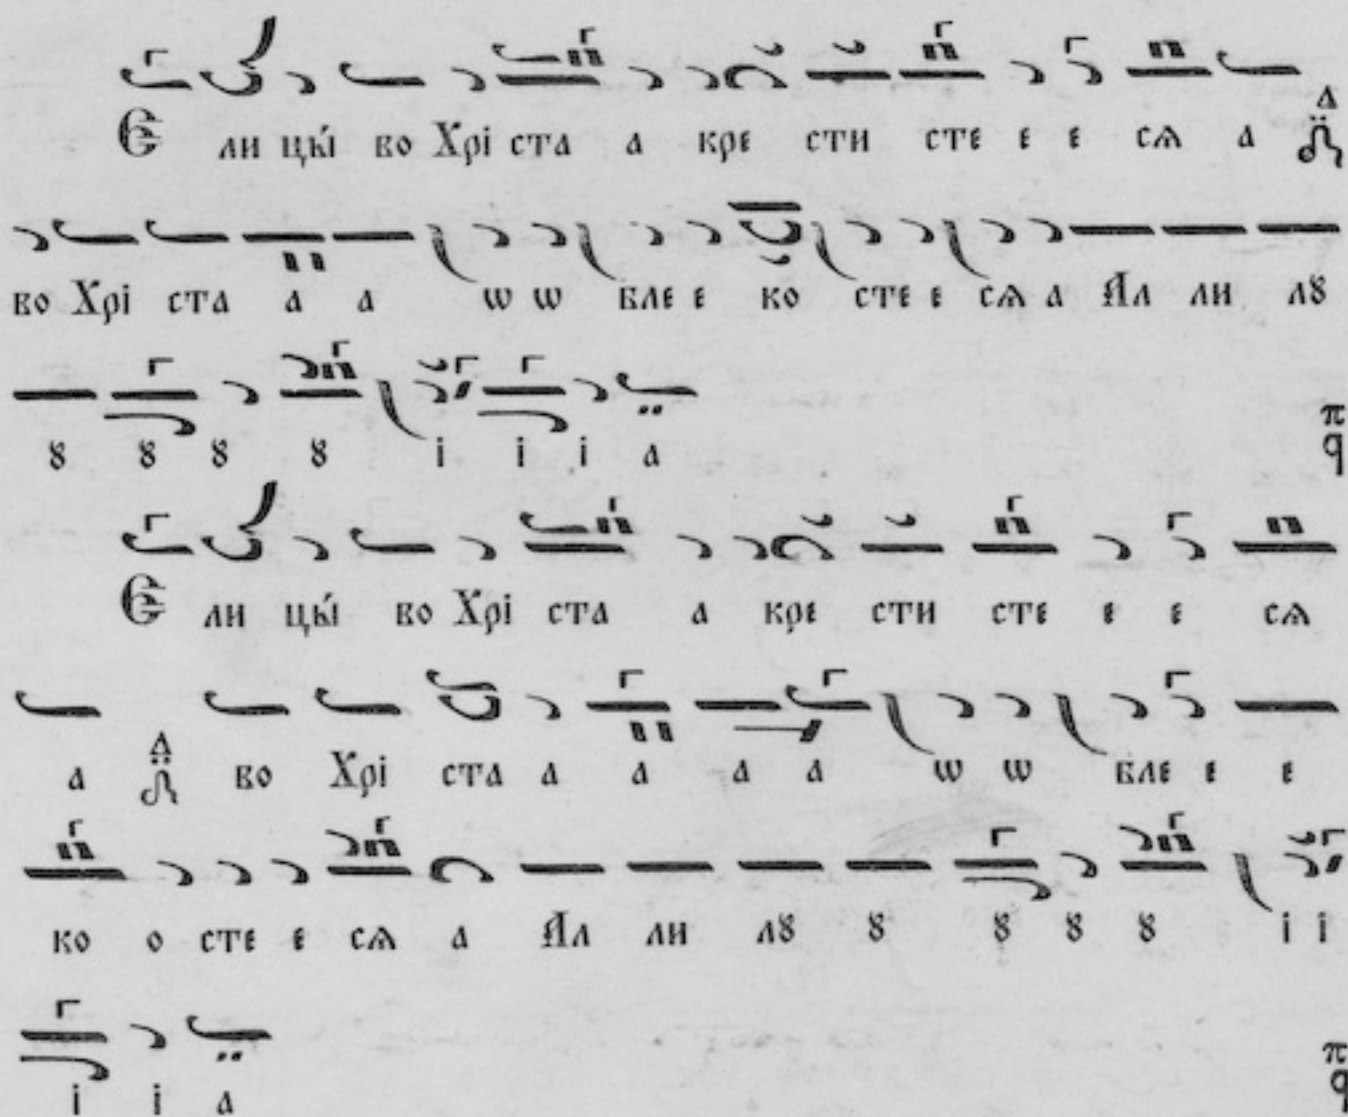 Є ли цы́ во Хрі ста а кре сти сте е е сѧ а
во Хрі ста а а ѡ ѡ бле е ко сте е сѧ а Ал ли лꙋ
ꙋ ꙋ ꙋ ꙋ і і і а
Є ли цы́ во Хрі ста а кре сти сте е е сѧ
а во Хрі ста а а а а ѡ ѡ бле е е
ко о сте е сѧ а Ал ли лꙋ ꙋ ꙋ ꙋ ꙋ і і
і і а